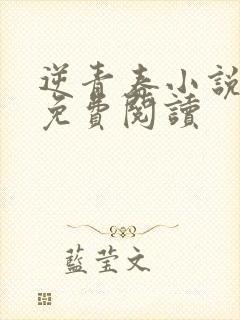 逆青春小說
免費閱讀
藍莹文